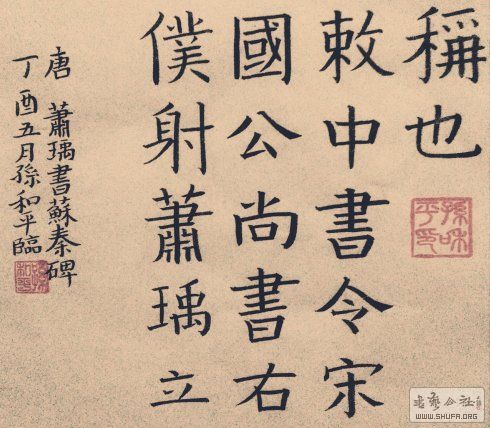 稱也
敕中書令宋
國公尚書右
僕射蕭瑀立
唐 蕭瑀書蘇秦碑
丁酉五月孫和平臨
孫和平印
WWW.SHUFA.ORG